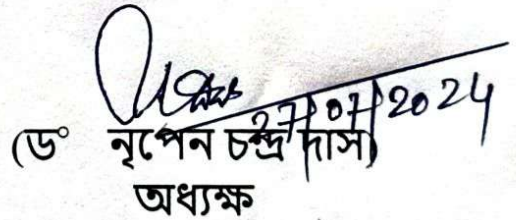 27/07/2024
(ড° নৃপেন চন্দ্র দাস)
অধ্যক্ষ